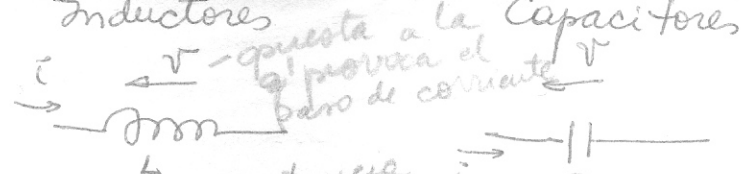 Inductores Capacitores
i v - opuesta a la v
q' provoca el
paso de corriente